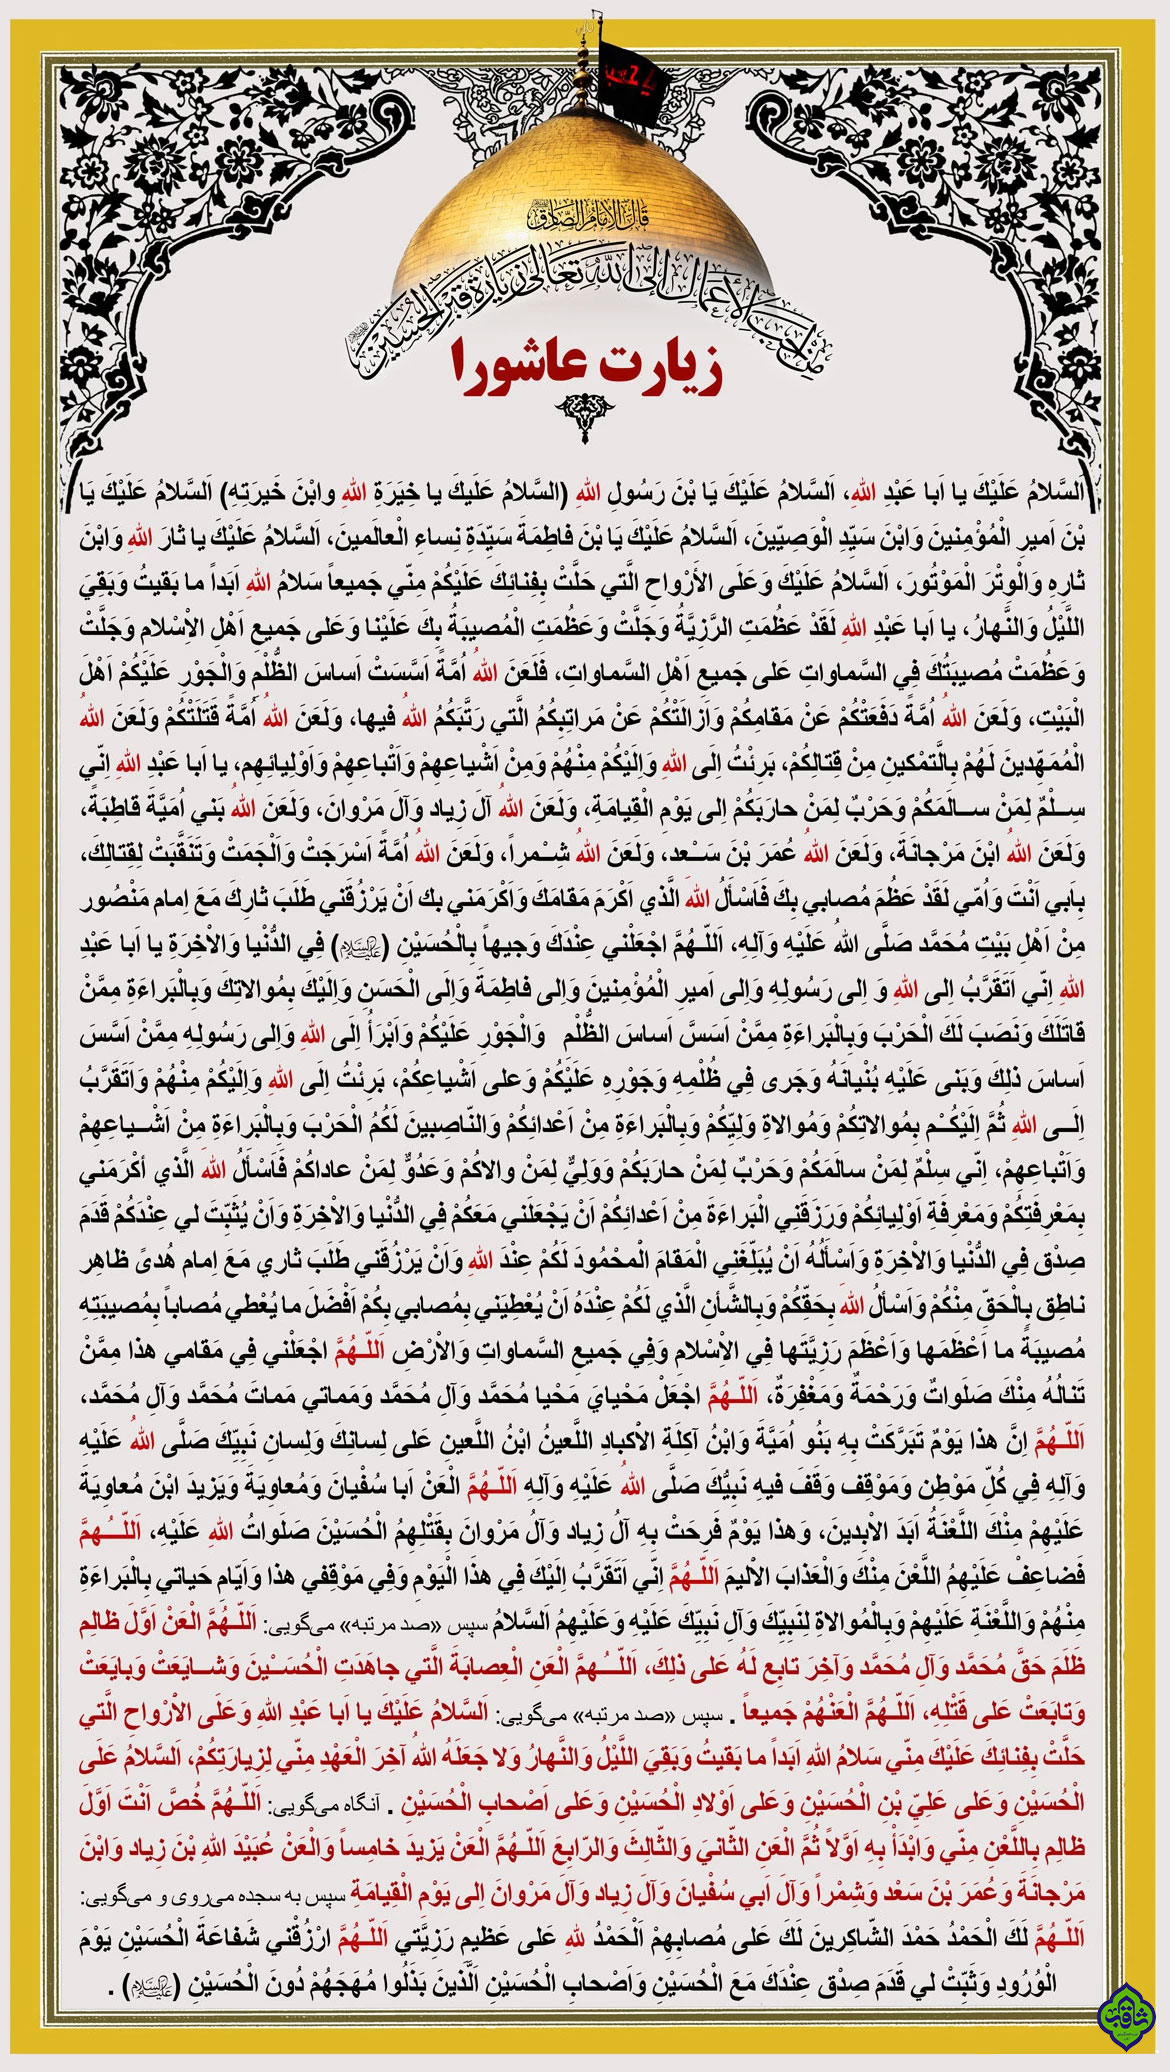 قالَ الإمامُ الصّادِقُ
مِنْ أَحَبِّ الأَعْمالِ إِلَى اللهِ تَعالى زِيارَةُ قَبْرِ الحُسَيْنِ
زیارت عاشورا
اَلسَّلامُ عَلَيْكَ يا اَبا عَبْدِ اللهِ، اَلسَّلامُ عَلَيْكَ يَا بْنَ رَسُولِ اللهِ (السَّلامُ عَلَيكَ يا خِيَرَةِ اللهِ وابْنَ خَيرَتِهِ) اَلسَّلامُ عَلَيْكَ يَا
بْنَ اَميرِ الْمُؤْمِنينَ وَابْنَ سَيِّدِ الْوَصِيّينَ، اَلسَّلامُ عَلَيْكَ يَا بْنَ فاطِمَةَ سَيِّدَةِ نِساءِ الْعالَمينَ، اَلسَّلامُ عَلَيْكَ يا ثارَ اللهِ وَابْنَ
ثارِهِ وَالْوِتْرَ الْمَوْتُورَ، اَلسَّلامُ عَلَيْكَ وَعَلَى الأَرْواحِ الَّتي حَلَّتْ بِفِنائِكَ عَلَيْكُمْ مِنّي جَميعاً سَلامُ اللهِ اَبَداً ما بَقيتُ وَبَقِيَ
اللَّيْلُ وَالنَّهارُ، يا اَبا عَبْدِ اللهِ لَقَدْ عَظُمَتِ الرَّزِيَّةُ وَجَلَّتْ وَعَظُمَتِ الْمُصيبَةُ بِكَ عَلَيْنا وَعَلى جَميعِ اَهْلِ الاِسْلامِ وَجَلَّتْ
وَعَظُمَتْ مُصيبَتُكَ فِي السَّماواتِ عَلى جَميعِ اَهْلِ السَّماواتِ، فَلَعَنَ اللهُ اُمَّةً اَسَّسَتْ اَساسَ الظُّلْمِ وَالْجَوْرِ عَلَيْكُمْ اَهْلَ
الْبَيْتِ، وَلَعَنَ اللهُ اُمَّةً دَفَعَتْكُمْ عَنْ مَقامِكُمْ وَاَزالَتْكُمْ عَنْ مَراتِبِكُمُ الَّتي رَتَّبَكُمُ اللهُ فيها، وَلَعَنَ اللهُ اُمَّةً قَتَلَتْكُمْ وَلَعَنَ اللهُ
الْمُمَهِّدينَ لَهُمْ بِالَّتمْكينِ مِنْ قِتالِكُمْ، بَرِئْتُ اِلَى اللهِ وَاِلَيْكُمْ مِنْهُمْ وَمِنْ اَشْياعِهِمْ وَاَتْباعِهِمْ وَاَوْلِيائِهِم، يا اَبا عَبْدِ اللهِ اِنّي
سِـلْمٌ لِمَنْ سـالَمَكُمْ وَحَرْبٌ لِمَنْ حارَبَكُمْ اِلى يَوْمِ الْقِيامَةِ، وَلَعَنَ اللهُ آلَ زِياد وَآلَ مَرْوانَ، وَلَعَنَ اللهُ بَني اُمَيَّةَ قاطِبَةً،
وَلَعَنَ اللهُ ابْنَ مَرْجانَةَ، وَلَعَنَ اللهُ عُمَرَ بْنَ سَـعْد، وَلَعَنَ اللهُ شِـمْراً، وَلَعَنَ اللهُ اُمَّةً اَسْرَجَتْ وَاَلْجَمَتْ وَتَنَقَّبَتْ لِقِتالِكَ،
بِاَبي اَنْتَ وَاُمّي لَقَدْ عَظُمَ مُصابي بِكَ فَاَسْأَلُ اللهَ الَّذي اَكْرَمَ مَقامَكَ وَاَكْرَمَني بِك اَنْ يَرْزُقَني طَلَبَ ثارِكَ مَعَ اِمام مَنْصُور
مِنْ اَهْلِ بَيْتِ مُحَمَّد صَلَّى اللهُ عَلَيْهِ وَآلِهِ، اَللّـهُمَّ اجْعَلْني عِنْدَكَ وَجيهاً بِالْحُسَيْنِ (عليه السلام) فِي الدُّنْيا وَالاْخِرَةِ يا اَبا عَبْدِ
اللهِ اِنّي اَتَقَرَّبُ اِلى اللهِ وَ اِلى رَسُولِهِ وَاِلى اَميرِ الْمُؤْمِنينَ وَاِلى فاطِمَةَ وَاِلَى الْحَسَنِ وَاِلَيْكَ بِمُوالاتِكَ وَبِالْبَراءَةِ مِمَّنْ
قاتَلَكَ وَنَصَبَ لَكَ الْحَرْبَ وَبِالْبَراءَةِ مِمَّنْ اَسَسَّ اَساسَ الظُّلْمِ وَالْجَوْرِ عَلَيْكُمْ وَاَبْرَأُ اِلَى اللهِ وَاِلى رَسُولِهِ مِمَّنْ اَسَّسَ
اَساسَ ذلِكَ وَبَنى عَلَيْهِ بُنْيانَهُ وَجَرى فِي ظُلْمِهِ وَجَوْرِهِ عَلَيْكُمْ وَعلى اَشْياعِكُمْ، بَرِئْتُ اِلى اللهِ وَاِلَيْكُمْ مِنْهُمْ وَاَتَقَرَّبُ
اِلَـى اللهِ ثُمَّ اِلَيْكُـمْ بِمُوالاتِكُمْ وَمُوالاةِ وَلِيِّكُمْ وَبِالْبَراءَةِ مِنْ اَعْدائِكُمْ وَالنّاصِبينَ لَكُمُ الْحَرْبَ وَبِالْبَراءَةِ مِنْ اَشْـياعِهِمْ
وَاَتْباعِهِمْ، اِنّي سِلْمٌ لِمَنْ سالَمَكُمْ وَحَرْبٌ لِمَنْ حارَبَكُمْ وَوَلِيٌّ لِمَنْ والاكُمْ وَعَدُوٌّ لِمَنْ عاداكُمْ فَاَسْأَلُ اللهَ الَّذي أكْرَمَني
بِمَعْرِفَتِكُمْ وَمَعْرِفَةِ اَوْلِيائِكُمْ وَرَزَقَنِي الْبَراءَةَ مِنْ اَعْدائِكُمْ اَنْ يَجْعَلَني مَعَكُمْ فِي الدُّنْيا وَالاْخِرَةِ وَاَنْ يُثَبِّتَ لي عِنْدَكُمْ قَدَمَ
صِدْق فِي الدُّنْيا وَالاْخِرَةِ وَاَسْأَلُهُ اَنْ يُبَلِّغَنِي الْمَقامَ الْمحْمُودَ لَكُمْ عِنْدَ اللهِ وَاَنْ يَرْزُقَني طَلَبَ ثاري مَعَ اِمام هُدىً ظاهِر
ناطِق بِالْحَقِّ مِنْكُمْ وَاَسْألُ اللهَ بِحَقِّكُمْ وَبِالشَّأنِ الَّذي لَكُمْ عِنْدَهُ اَنْ يُعْطِيَني بِمُصابي بِكُمْ اَفْضَلَ ما يُعْطي مُصاباً بِمُصيبَتِهِ
مُصيبَةً ما اَعْظَمَها وَاَعْظَمَ رَزِيَّتَها فِي الاِْسْلامِ وَفِي جَميعِ السَّماواتِ وَالاْرْضِ اَللّـهُمَّ اجْعَلْني فِي مَقامي هذا مِمَّنْ
تَنالُهُ مِنْكَ صَلَواتٌ وَرَحْمَةٌ وَمَغْفِرَةٌ، اَللّـهُمَّ اجْعَلْ مَحْيايَ مَحْيا مُحَمَّد وَآلِ مُحَمَّد وَمَماتي مَماتَ مُحَمَّد وَآلِ مُحَمَّد،
اَللّـهُمَّ اِنَّ هذا يَوْمٌ تَبَرَّكَتْ بِهِ بَنُو اُمَيَّةَ وَابْنُ آكِلَةِ الاَكبادِ اللَّعينُ ابْنُ اللَّعينِ عَلى لِسانِكَ وَلِسانِ نَبِيِّكَ صَلَّى اللهُ عَلَيْهِ
وَآلِهِ فِي كُلِّ مَوْطِن وَمَوْقِف وَقَفَ فيهِ نَبِيُّكَ صَلَّى اللهُ عَلَيْهِ وَآلِهِ اَللّـهُمَّ الْعَنْ اَبا سُفْيانَ وَمُعاوِيَةَ وَيَزيدَ ابْنَ مُعاوِيَةَ
عَلَيْهِمْ مِنْكَ اللَّعْنَةُ اَبَدَ الاْبِدينَ، وَهذا يَوْمٌ فَرِحَتْ بِهِ آلُ زِياد وَآلُ مَرْوانَ بِقَتْلِهِمُ الْحُسَيْنَ صَلَواتُ اللهِ عَلَيْهِ، اَللّـهُمَّ
فَضاعِفْ عَلَيْهِمُ اللَّعْنَ مِنْكَ وَالْعَذابَ الاْليمَ اَللّـهُمَّ اِنّي اَتَقَرَّبُ اِلَيْكَ فِي هذَا الْيَوْمِ وَفِي مَوْقِفي هذا وَاَيّامِ حَياتي بِالْبَراءَةِ
مِنْهُمْ وَاللَّعْنَةِ عَلَيْهِمْ وَبِالْمُوالاةِ لِنَبِيِّكَ وَآلِ نَبِيِّكَ عَلَيْهِ وَعَلَيْهِمُ اَلسَّلامُ سپس «صد مرتبه» می‌گویی: اَللّـهُمَّ الْعَنْ اَوَّلَ ظالِم
ظَلَمَ حَقَّ مُحَمَّد وَآلِ مُحَمَّد وَآخِرَ تابِع لَهُ عَلى ذلِكَ، اَللّـهُمَّ الْعَنِ الْعِصابَةَ الَّتي جاهَدَتِ الْحُسَـيْنَ وَشـايَعَتْ وَبايَعَتْ
وَتابَعَتْ عَلى قَتْلِهِ، اَللّـهُمَّ الْعَنْهُمْ جَميعاً . سپس «صد مرتبه» می‌گویی: اَلسَّلامُ عَلَيْكَ يا اَبا عَبْدِ اللهِ وَعَلَى الاْرْواحِ الَّتي
حَلَّتْ بِفِنائِكَ عَلَيْكَ مِنّي سَلامُ اللهِ اَبَداً ما بَقيتُ وَبَقِيَ اللَّيْلُ وَالنَّهارُ وَلا جَعَلَهُ اللهُ آخِرَ الْعَهْدِ مِنّي لِزِيارَتِكُمْ، اَلسَّلامُ عَلَى
الْحُسَيْنِ وَعَلى عَلِيِّ بْنِ الْحُسَيْنِ وَعَلى اَوْلادِ الْحُسَيْنِ وَعَلى اَصْحابِ الْحُسَيْنِ . آنگاه می‌گویی: اَللّـهُمَّ خُصَّ اَنْتَ اَوَّلَ
ظالِم بِاللَّعْنِ مِنّي وَابْدَأْ بِهِ اَوَّلاً ثُمَّ الْعَنِ الثّانيَ وَالثّالِثَ وَالرّابِعَ اَللّـهُمَّ الْعَنْ يَزيدَ خامِساً وَالْعَنْ عُبَيْدَ اللهِ بْنَ زِياد وَابْنَ
مَرْجانَةَ وَعُمَرَ بْنَ سَعْد وَشِمْراً وَآلَ اَبي سُفْيانَ وَآلَ زِياد وَآلَ مَرْوانَ اِلى يَوْمِ الْقِيامَةِ سپس به سجده می‌روی و می‌گویی:
اَللّـهُمَّ لَكَ الْحَمْدُ حَمْدَ الشّاكِرينَ لَكَ عَلى مُصابِهِمْ اَلْحَمْدُ للهِ عَلى عَظيمِ رَزِيَّتي اَللّـهُمَّ ارْزُقْني شَفاعَةَ الْحُسَيْنِ يَوْمَ
الْوُرُودِ وَثَبِّتْ لي قَدَمَ صِدْق عِنْدَكَ مَعَ الْحُسَيْنِ وَاَصْحابِ الْحُسَيْنِ اَلَّذينَ بَذَلُوا مُهَجَهُمْ دُونَ الْحُسَيْنِ (عليه السلام) .
ثاقب